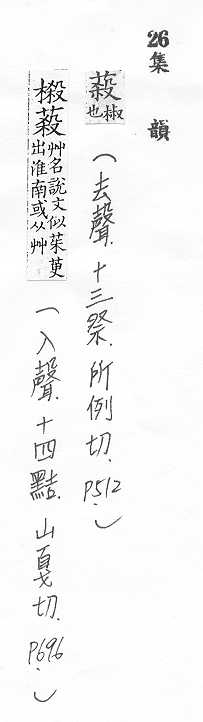 26 集韻
蔱 椒也 (去聲.十三祭.所例切.P512.)
樧蔱 艸名說文似茱萸出淮南或从艸 (入聲.十四黠.山戛切.P696.)